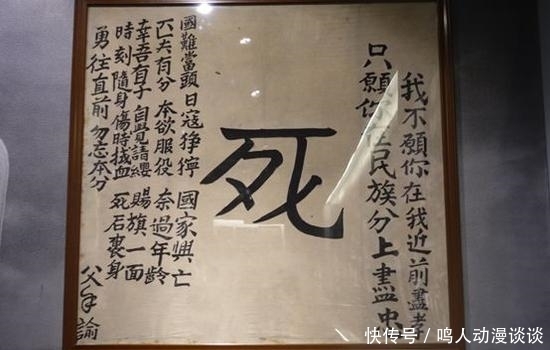 我不願你在我近前盡孝
只願你在民族分上盡忠
死
國難當頭 日寇猙獰 國家興亡
匹夫有分 本欲服役 奈過年齡
幸吾有子 自覺請纓 賜旗一面
時刻隨身 傷時拭血 死后裹身
勇往直前 勿忘本分
父手諭
快传号／鸣人动漫谈谈